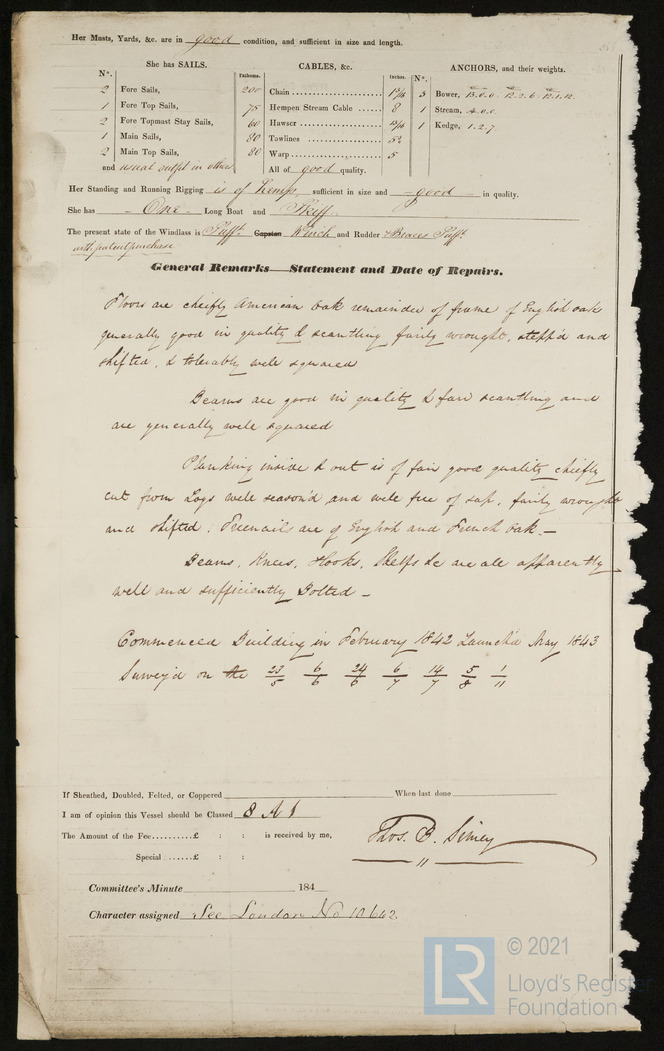 Her Masts, Yards, &c. are in good condition, and sufficient in size and length.
She has SAILS.
CABLES, &c.
ANCHORS, and their weights.
Nº.
Fathoms.
Inches.
Nº.
2 Fore Sails, 200 Chain 1 5/16 3 Bower, 13.0.0. 12.2.6. 12.1.12
1 Fore Top Sails, 75 Hempen Stream Cable 8 1 Stream, 4.0.0
2 Fore Topmast Stay Sails, 60 Hawser 1 Kedge, 1.2.7
1 Main Sails, 80 Towlines 5½
2 Main Top Sails, 80 Warp 5
and usual outfit in others All of good quality.
Her Standing and Running Rigging is of Hemp, sufficient in size and good in quality.
She has One Long Boat and Skiff
The present state of the Windlass is Sufft. Capstan Winch and Rudder + Braces Sufft.
with patent purchase
General Remarks—Statement and Date of Repairs.
Floors are cheifly American Oak remainder of frame of English oak
generally good in quality & scantling fairly wrought, stepp'd and
shifted, & tolerably well squared
Beams are good in quality & fair scantling and
are generally well squared
Planking inside & out is of fair good quality cheifly
cut from Logs well season'd and well free of sap, fairly wrought
and shifted. Treenails are of English and French Oak.—
Beams, Knees, Hooks, Shelfs &c are all apparently
well and sufficiently Bolted —
Commenced Building in February 1842 Launch'd May 1843
Survey'd on the 23/5 6/6 24/6 6/7 14/7 5/8 1/11
If Sheathed, Doubled, Felted, or Coppered When last done
I am of opinion this Vessel should be Classed 8 A 1
The Amount of the Fee..........£ : : is received by me,
Special .......£ : :
Thos. B. Simey
Committee's Minute 184
Character assigned See London No 10642
© 2021
LR
Lloyd's Register
Foundation